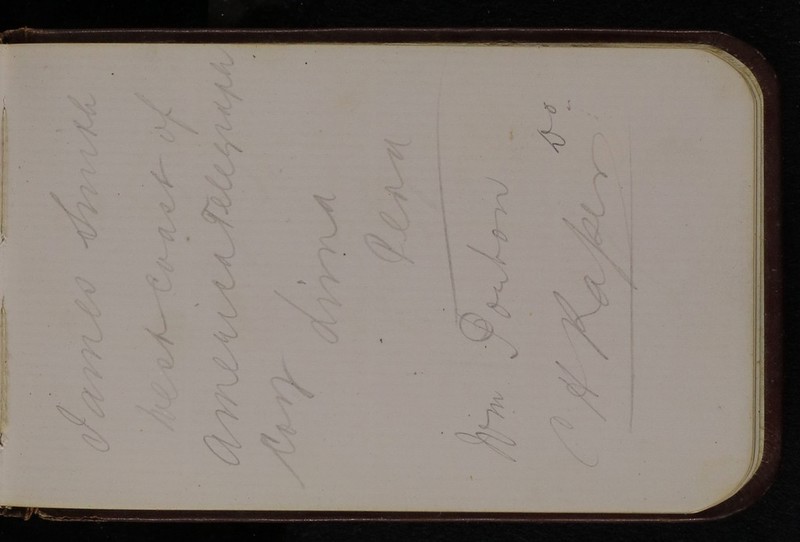 James Smith
West coast of
America Telegraph
Coy Lima
Peru
Wm Porton
C H Raper Do.